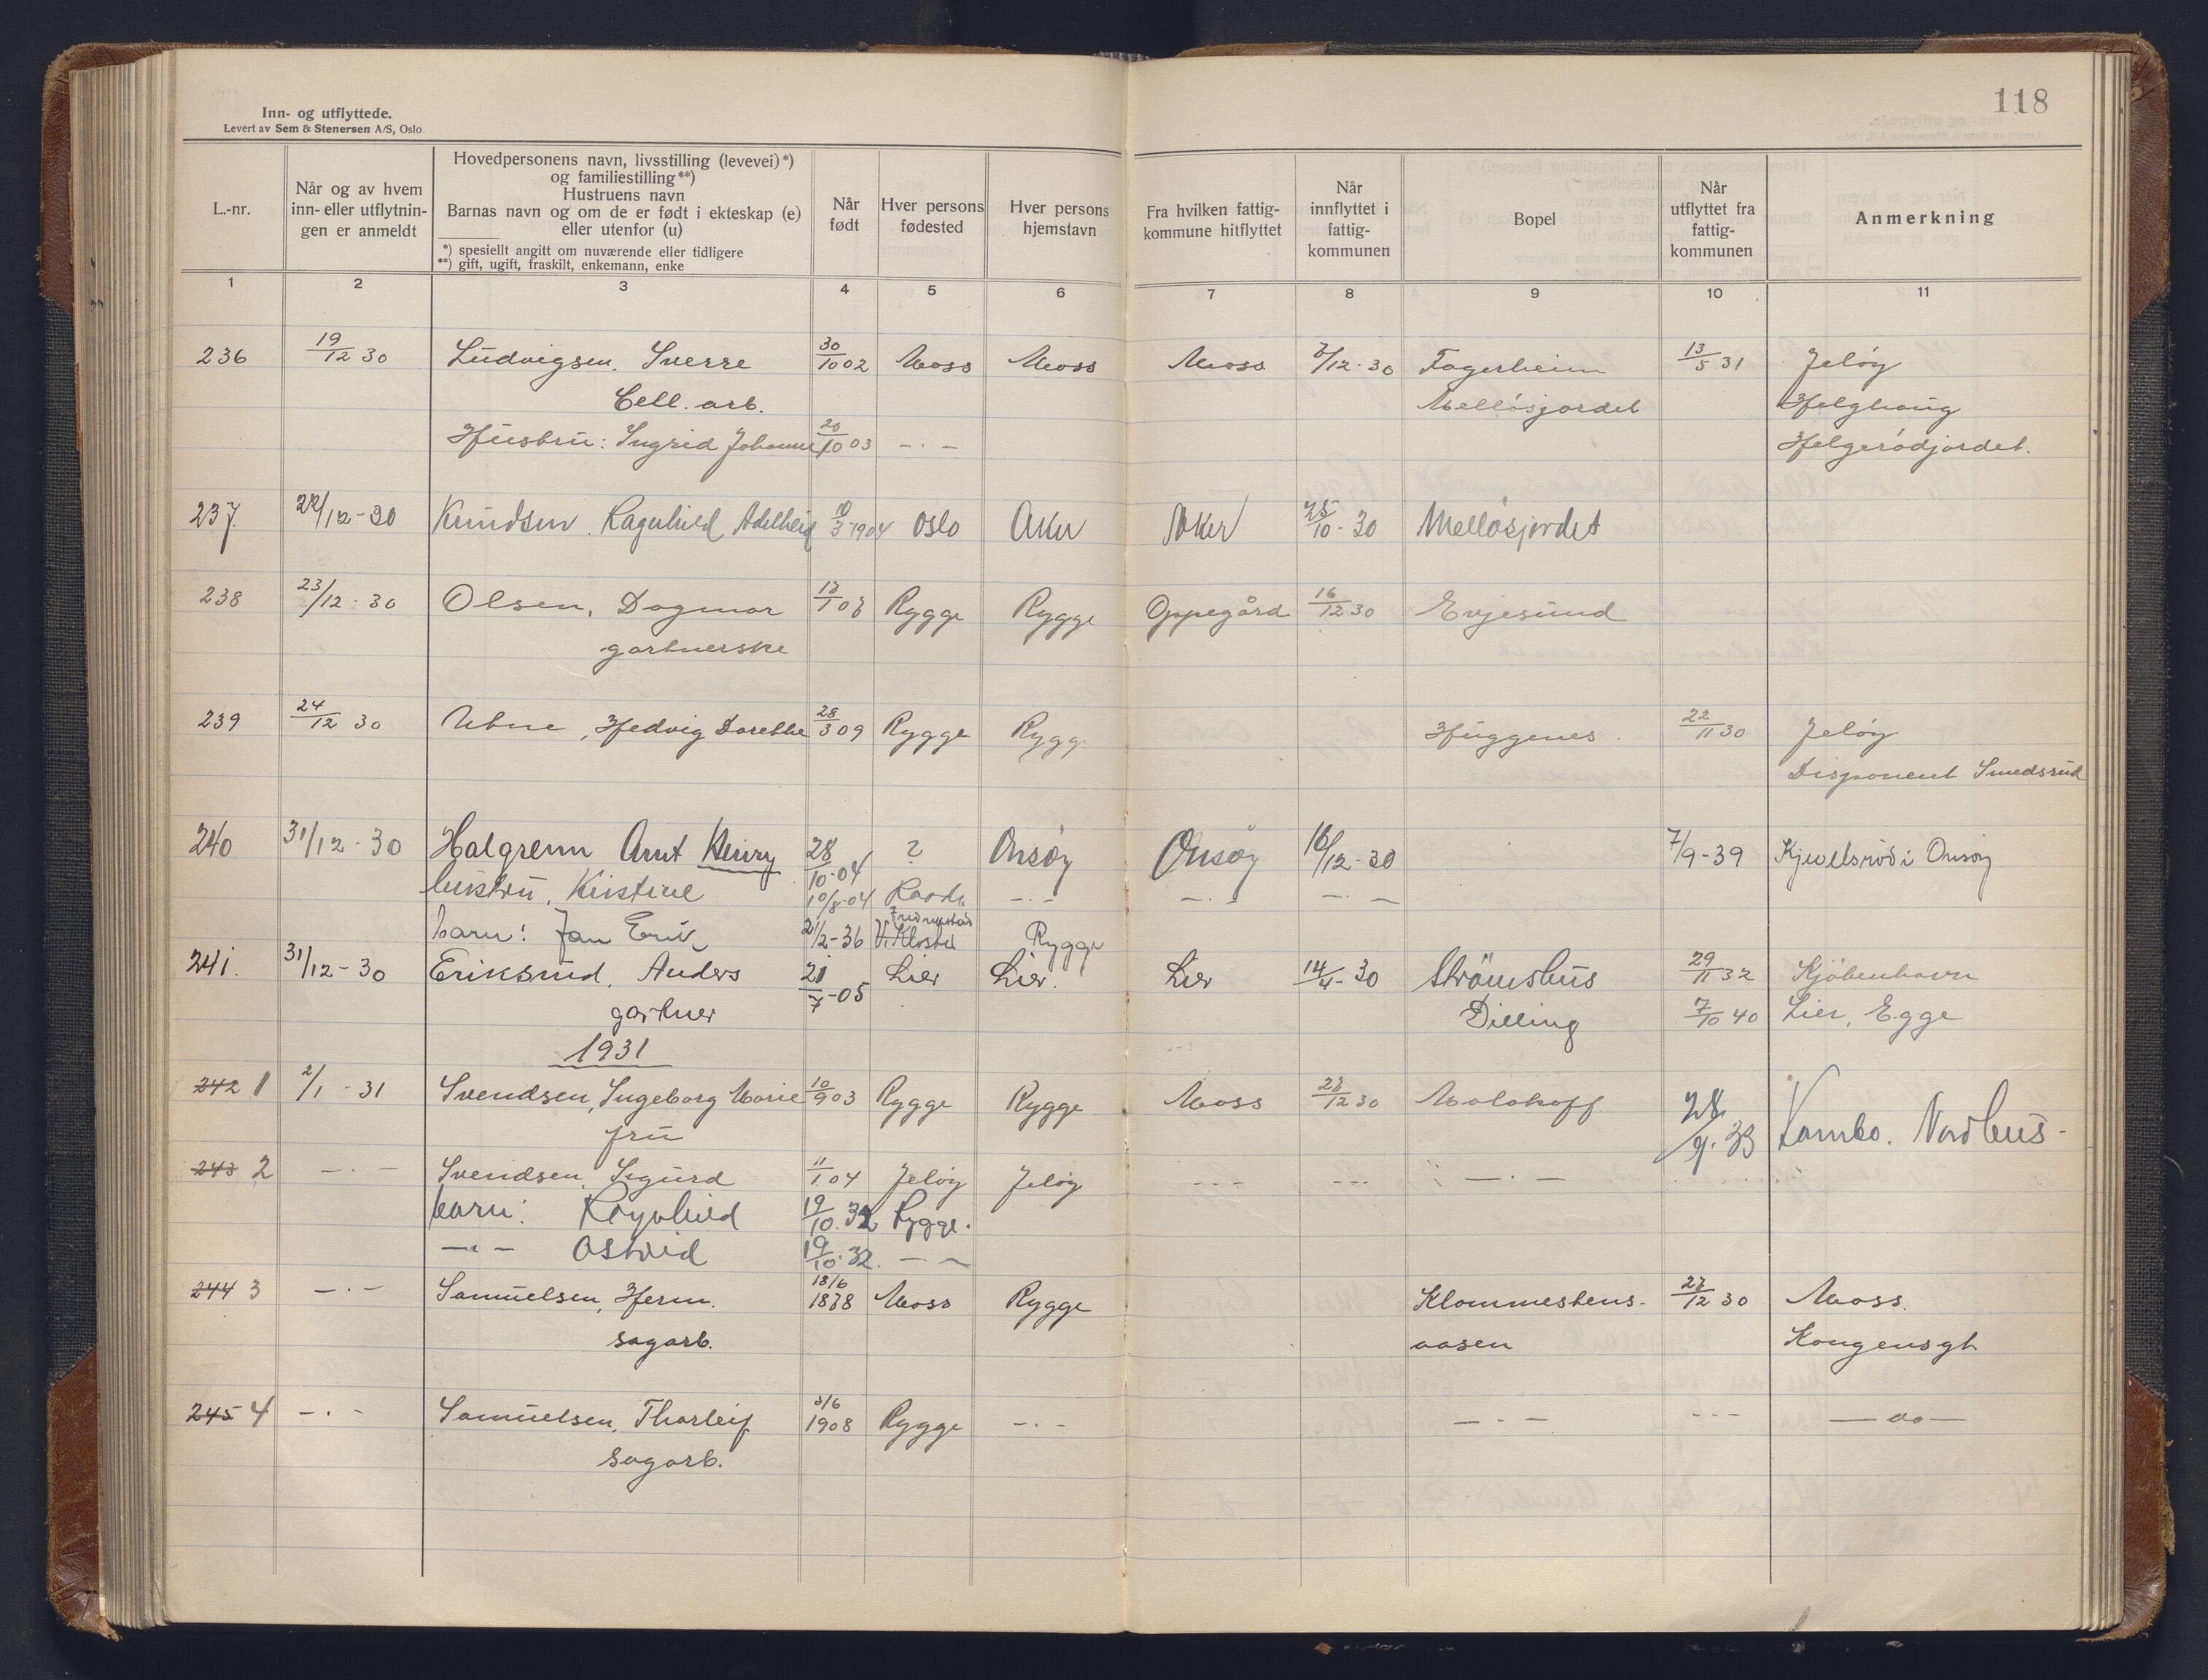 118
Inn- og utflyttede.
Levert av Sem & Stenersen A/S, Oslo.
L.-nr.
Når og av hvem
inn- eller utflytnin-
gen er anmeldt
Hovedpersonens navn, livsstilling (levevei)*)
og familiestilling**)
Hustruens navn
Barnas navn og om de er født i ekteskap (e)
eller utenfor (u)
*) spesiellt angitt om nuværende eller tidligere
**) gift, ugift, fraskilt, enkemann, enke
Når
født
Hver persons
fødested
Hver persons
hjemstavn
Fra hvilken fattig-
kommune hitflyttet
Når
innflyttet i
fattig-
kommunen
Bopel
Når
utflyttet fra
fattig-
kommunen
Anmerkning
1 2 3 4 5 6 7 8 9 10 11
236 19/12 30 Ludvigsen, Sverre 30/10 02 Moss Moss Moss /12-30 Fagerheim 13/5 31 Jeløy
Cell. arb. Melløsjordet Helghaug
Hustru: Ingrid Johanne 20/10 03 - . - Helgerødjordet.
237. 22/12-30 Knudsen, Ragnhild Adelheid 10/3-1904 Oslo Aker Aker 25/10-30 Melløsjordet
238 23/12-30 Olsen, Dagmar 13/1 03 Rygge Rygge Oppegård 16/12 30 Evjesund
gartnerske
239 24/12 30 Utne, Hedvig Dorethe 28/3 09 Rygge Rygge Huggenes 22/11 30 Jeløy
Disponent Smedsrud
240 31/12-30 Halgrenn Arnt Henry 28/10-04 ? Onsøy Onsøy 16/12-30 7/9-39 Kjevelsrød i Onsøy
hustru, Kristine 10/8-04 Raade - . - - . - - . -
barn: Jan Erik 21/2-36 Kloster Rygge
241. 31/12-30 Eriksrud, Anders 21/7-05 Lier Lier. Lier 14/4-30 Strömshus 29/11 32 Kjøbenhavn
gartner Dilling 7/10 40 Lier, Egge
1931
242 1 2/1-31 Svendsen, Ingeborg Marie 10/9 03 Rygge Rygge Moss 23/12 30 Malakoff 28/9.33 Kambo. Nordhus-
fru
243 2 - . - Svendsen, Sigurd 11/1 04 Jeløy Jeløy - - - - - - - . -
barn: Ragnhild 19/10.32 Rygge.
- " - Astrid 19/10.32. - -
244 3 - . - Samuelsen, Herm. 18/6 1878 Moss Rygge Klommestens- 23/12 30 Moss.
sagarb. aasen Kongensgt
245 4 - . - Samuelsen, Thorleif 3/6 1908 Rygge - . - - . - - - - - do -
Sagarb.